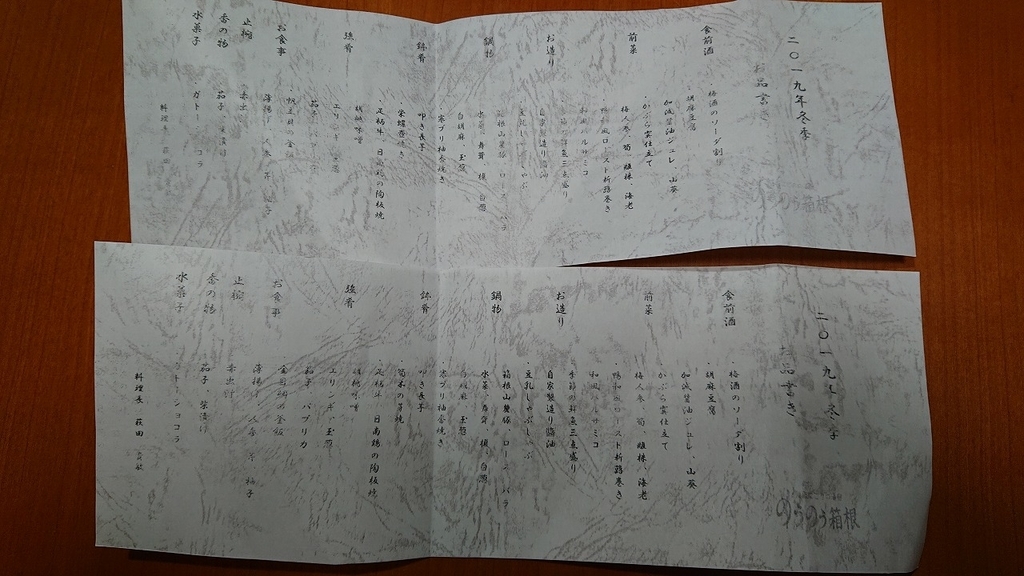 二〇一九年冬季
お品書き
のうのう箱根
食前酒
・梅酒のソーダ割り
前菜
・胡麻豆腐
加減醤油ジュレ 山葵
・かぶら雲仕立て
梅人参、筍、椎茸、海老
・鴨和風ロースト折路巻き
和風バルサミコ
お造り
・季節の鮮魚三点盛り
自家製造り醤油
鍋物
・豆乳しゃぶしゃぶ
箱根山麓豚 ロース、バラ
水菜、舞茸、榎、白葱
白胡麻、玉葱
鉢肴
・寒ブリ柚香焼き
叩き長芋
・栄螺壺焼き
強肴
・足柄牛、日高鶏の陶板焼
胡桃味噌
エリンギ、玉葱
茄子、パプリカ
お食事
・帆立貝の釜飯
薄揚げ、人参、芹、柚子
止椀
・赤出汁
香の物
・茄子、柴漬け
水菓子
・ガトーショコラ
料理長 萩田
二〇一九年冬季
お品書き
のうのう箱根
食前酒
・梅酒のソーダ割り
前菜
・胡麻豆腐
加減醤油ジュレ 山葵
・かぶら雲仕立て
梅人参、筍、椎茸、海老
・鴨和風ロースト折路巻き
和風バルサミコ
お造り
・季節の鮮魚三点盛り
自家製造り醤油
鍋物
・豆乳しゃぶしゃぶ
箱根山麓豚 ロース、バラ
水菜、舞茸、榎、白葱
白胡麻、玉葱
鉢肴
・寒ブリ柚香焼き
叩き長芋
強肴
・足柄牛、日高鶏の陶板焼
胡桃味噌
エリンギ、玉葱
茄子、パプリカ
お食事
・金目鯛の釜飯
薄揚げ、人参、芹、柚子
止椀
・赤出汁
香の物
・茄子、柴漬け
水菓子
・ガトーショコラ
料理長 萩田